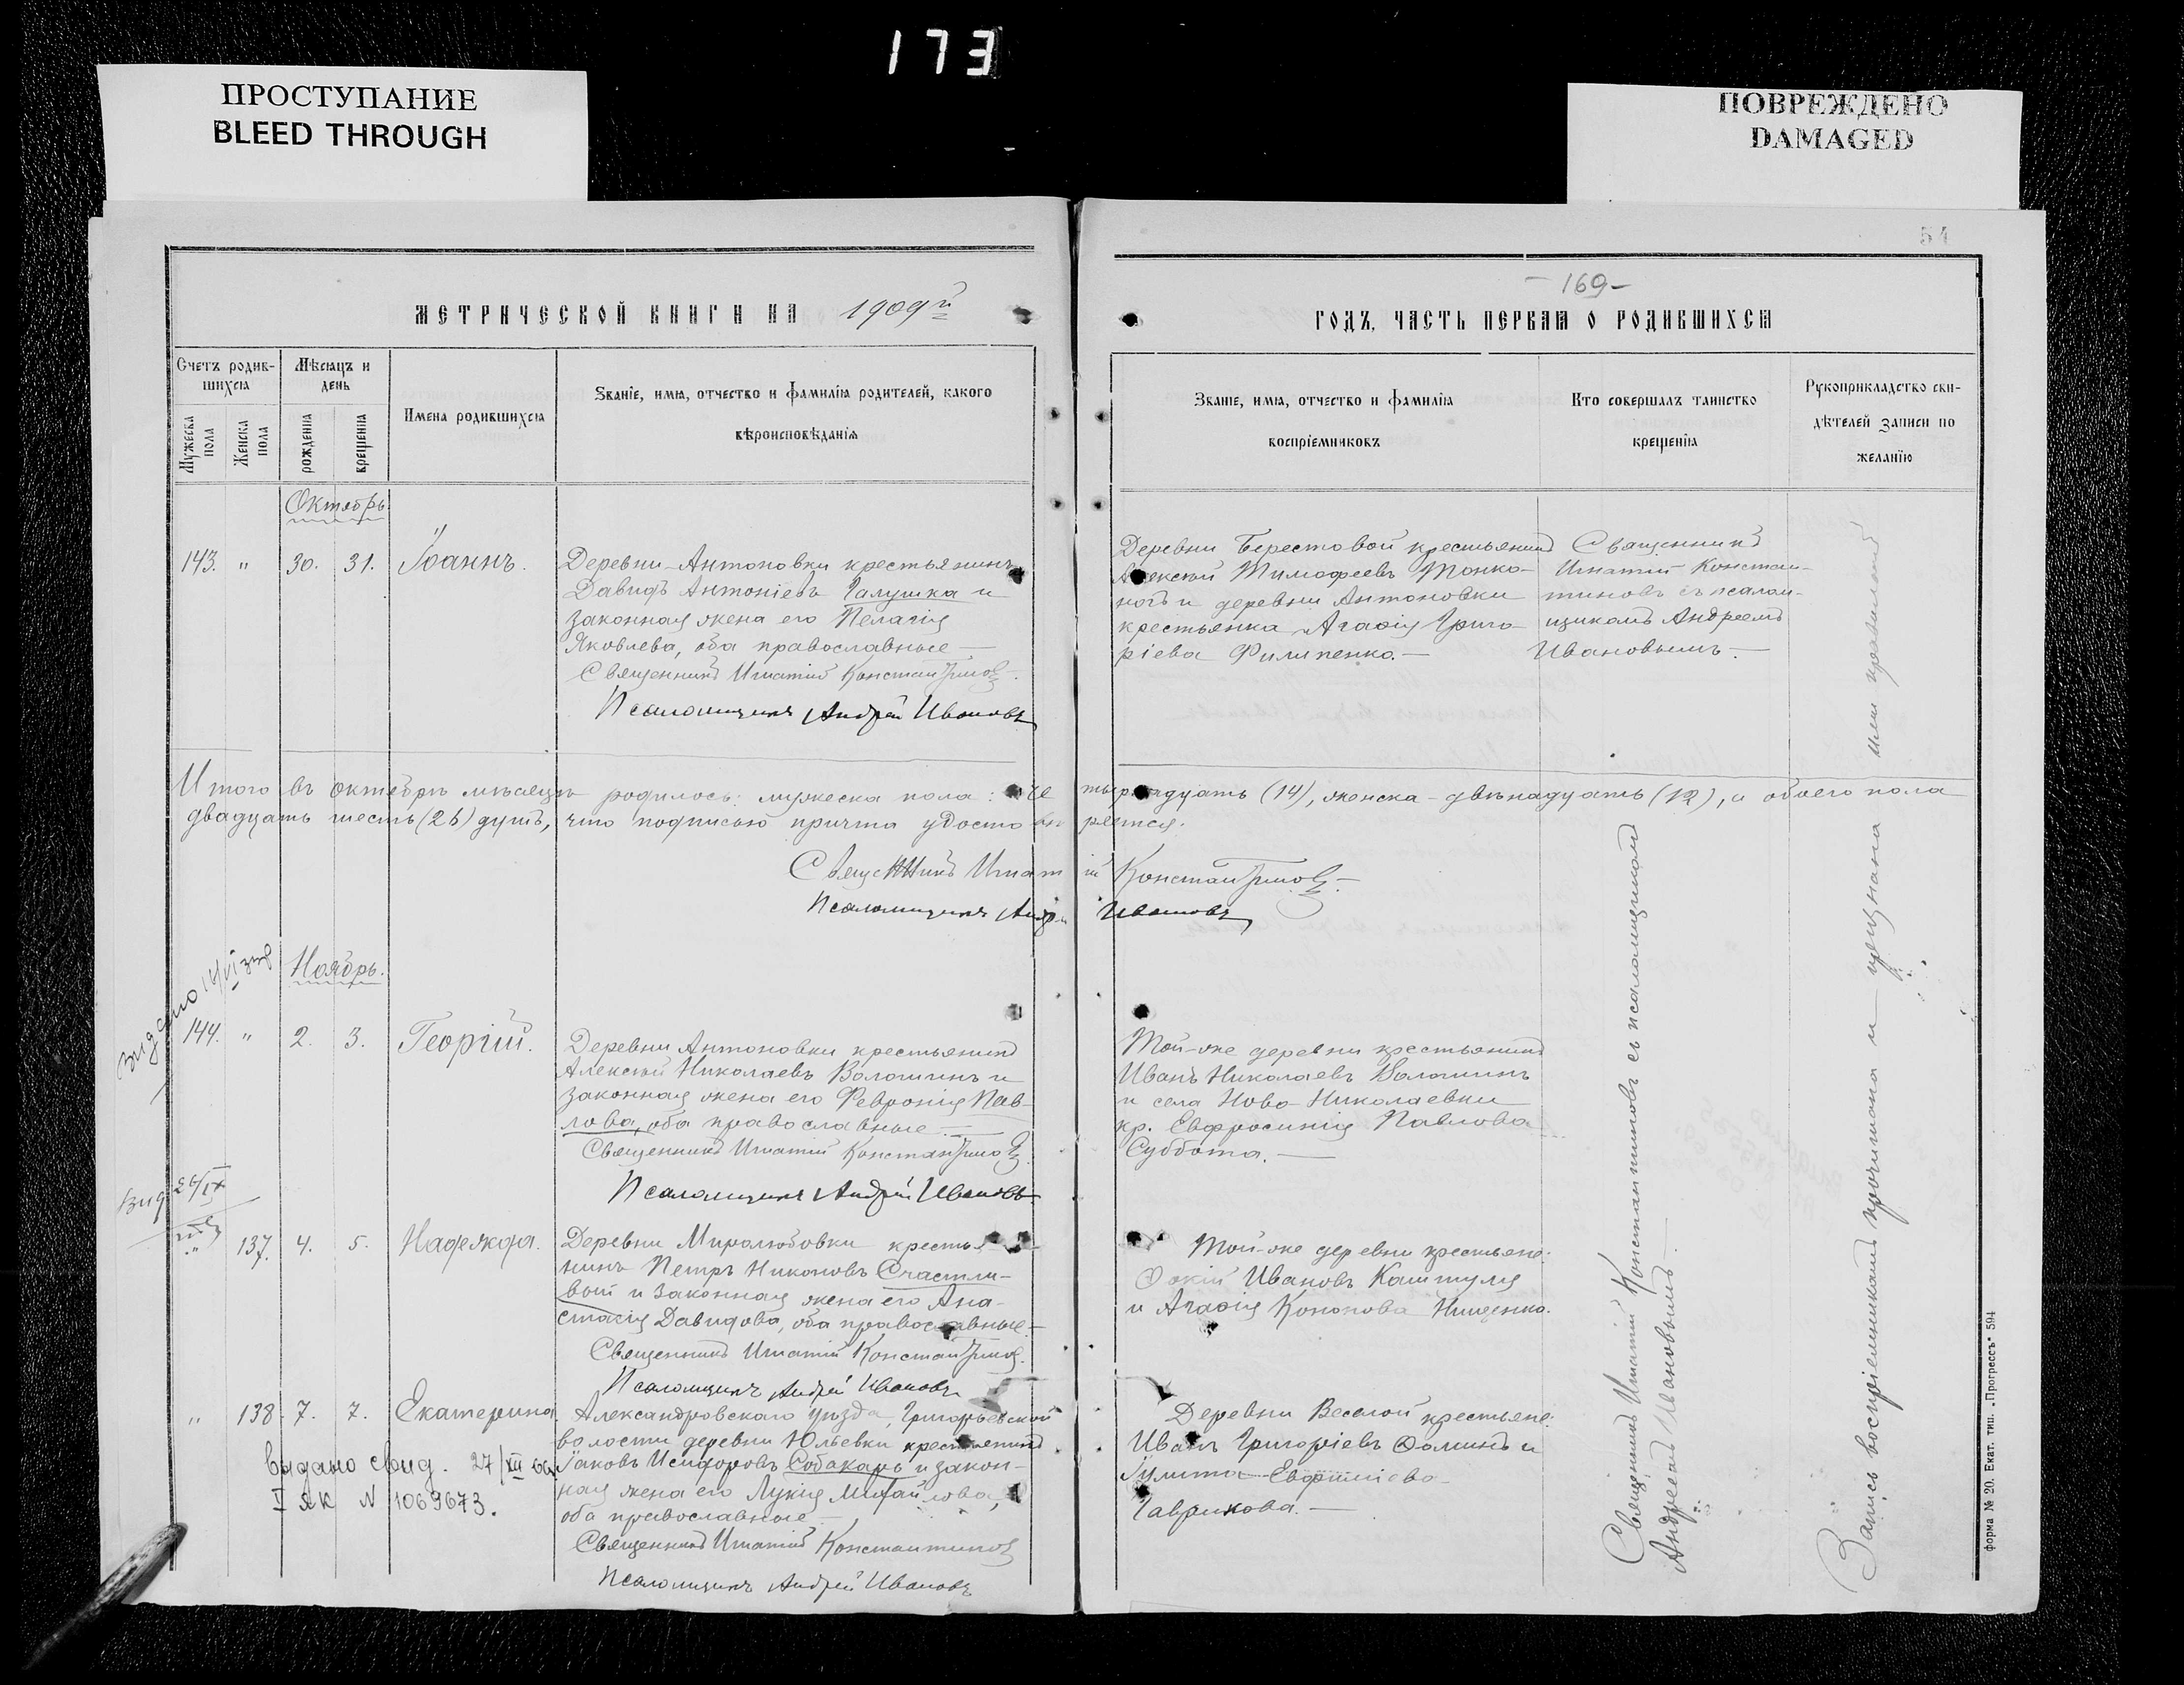 173
ПРОСТУПАНИЕ
BLEED THROUGH
ПОВРЕЖДЕНО
DAMAGED
54
МЕТРИЧЕСКОЙ КНИГИ НА 1909й
Счетъ родившихся
Мужеска пола
Женска пола
Мѣсяцъ и день
рожденія
крещенія
Имена родившихся
Званіе, имя, отчество и фамилія родителей, какого
вѣроисповѣданія
Октябрь.
143. " 30. 31. Іоаннъ.
Деревни Антоновки крестьянинъ
Давидъ Антоніевъ Галушка и
законная жена его Пелагія
Яковлева, оба православные —
Священникъ Игнатій Константиновъ.
Псаломщикъ Андрей Ивановъ
Итого въ октябрѣ мѣсяцѣ родилось: мужеска пола: четырнадцать (14), женска - двѣнадцать (12), а обоего пола
двадцать шесть (26) душъ, что подписью причта удостовѣряется.
Священникъ Игнатій Константиновъ.
Псаломщикъ Андрей Ивановъ
Ноябрь.
144. " 2. 3. Георгій.
Деревни Антоновки крестьянинъ
Алексѣй Николаевъ Волошинъ и
законная жена его Февронія Пав-
лова, оба православные. —
Священникъ Игнатій Константиновъ
Псаломщикъ Андрей Ивановъ.
" 137. 4. 5. Надежда.
Деревни Миролюбовки крестья-
нинъ Петръ Никоновъ Счастли-
вый и законная жена его Ана-
стасія Давидова, оба православные. —
Священникъ Игнатій Константиновъ.
Псаломщикъ Андрей Ивановъ
" 138. 7. 7. Екатерина
Александровскаго уѣзда, Григорьевской
волости деревни Юльевки крестьянинъ
Іаковъ Исидоровъ Собакарь и закон-
ная жена его Лукія Михайлова,
оба православные —
Священникъ Игнатій Константиновъ
Псаломщикъ Андрей Ивановъ
видано свид. 27/XII
V ЯК N 1069673.
- 169 -
ГОДЪ, ЧАСТЬ ПЕРВАЯ О РОДИВШИХСЯ
Званіе, имя, отчество и фамилія
воспріемниковъ
Кто совершалъ таинство
крещенія
Рукоприкладство сви-
дѣтелей записи по
желанію
Деревни Берестовой крестьянинъ
Алексѣй Тимофеевъ Тонко-
ногъ и деревни Антоновки
крестьянка Агафія Григо-
ріева Филипенко. —
Священникъ
Игнатій Констан-
тиновъ съ псалом-
щикомъ Андреемъ
Ивановымъ. —
Той-же деревни крестьянинъ
Иванъ Николаевъ Волошинъ
и села Ново-Николаевки
кр. Евфросинія Павлова
Суббота. —
Той-же деревни крестьяне:
Фокій Ивановъ Каштуля
и Агафія Кононова Нищенко.
Деревни Веселой крестьяне:
Иванъ Григоріевъ Фоминъ и
Гаврикова. —
Священникъ Игнатій Константиновъ съ псаломщикомъ
Андреемъ Ивановымъ. —
Запись воспріемникамъ прочитана и
форма № 20. Екат. тип. „Прогрессъ" 594